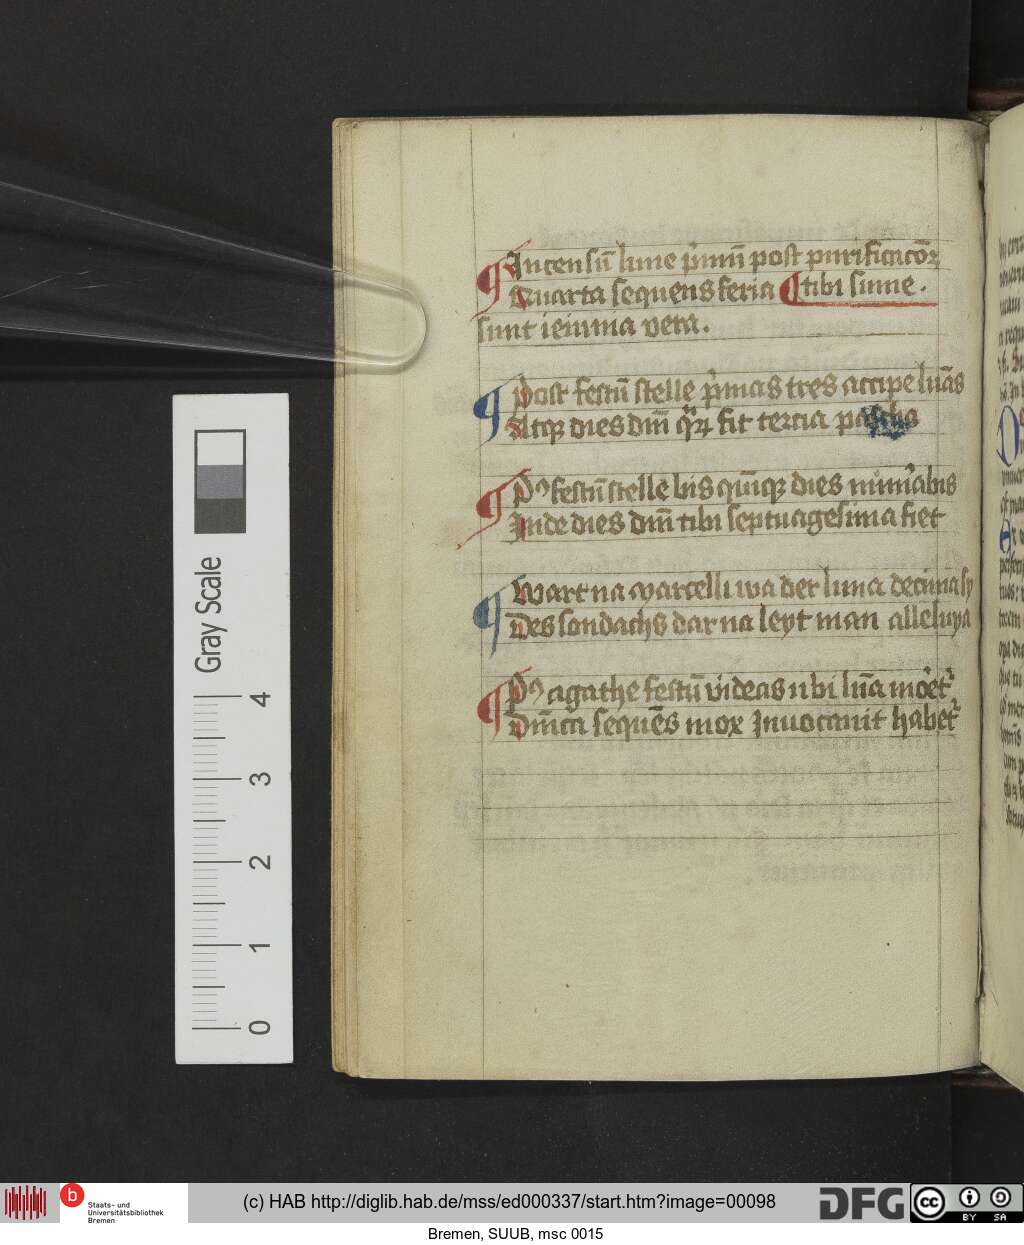 Incensū lune p̄mū post purificacōꝫ
Quarta sequens feria ¶ tibi sume .
sunt ieiunia vera .
Post festū stelle p̄mas tres accipe lūas
Atqꝫ dies dm̄ qr̄ fit tercia pascha
Pꝰ festū stelle bis quīqꝫ dies nūm̄abis
Inde dies dm̄ tibi septuagesima fiet
Wart na Marcelli wa der luna decima sy
Des sondachs dar na leyt man alleluya
Pꝰ agathe festū videas ubi lūa mōet̄
Dm̄ica sequēs mox Inuocauit habet̄
Gray Scale
4
3
2
1
0
b
Staats- und
Universitätsbibliothek
Bremen
(c) HAB http://diglib.hab.de/mss/ed000337/start.htm?image=00098
DFG
cc BY SA
Bremen, SUUB, msc 0015